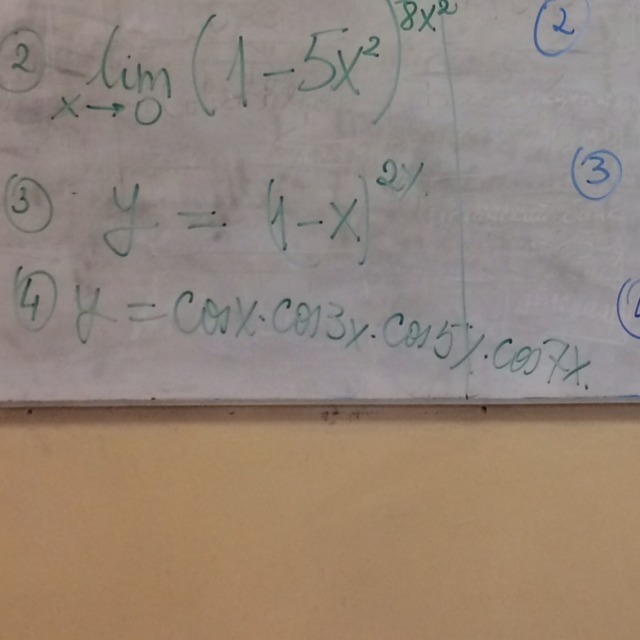 ② lim (1-5x²)^8x²
x→0
②
③ y = (1-x)^2x
③
④ y = cosx·cos3x·cos5x·cos7x